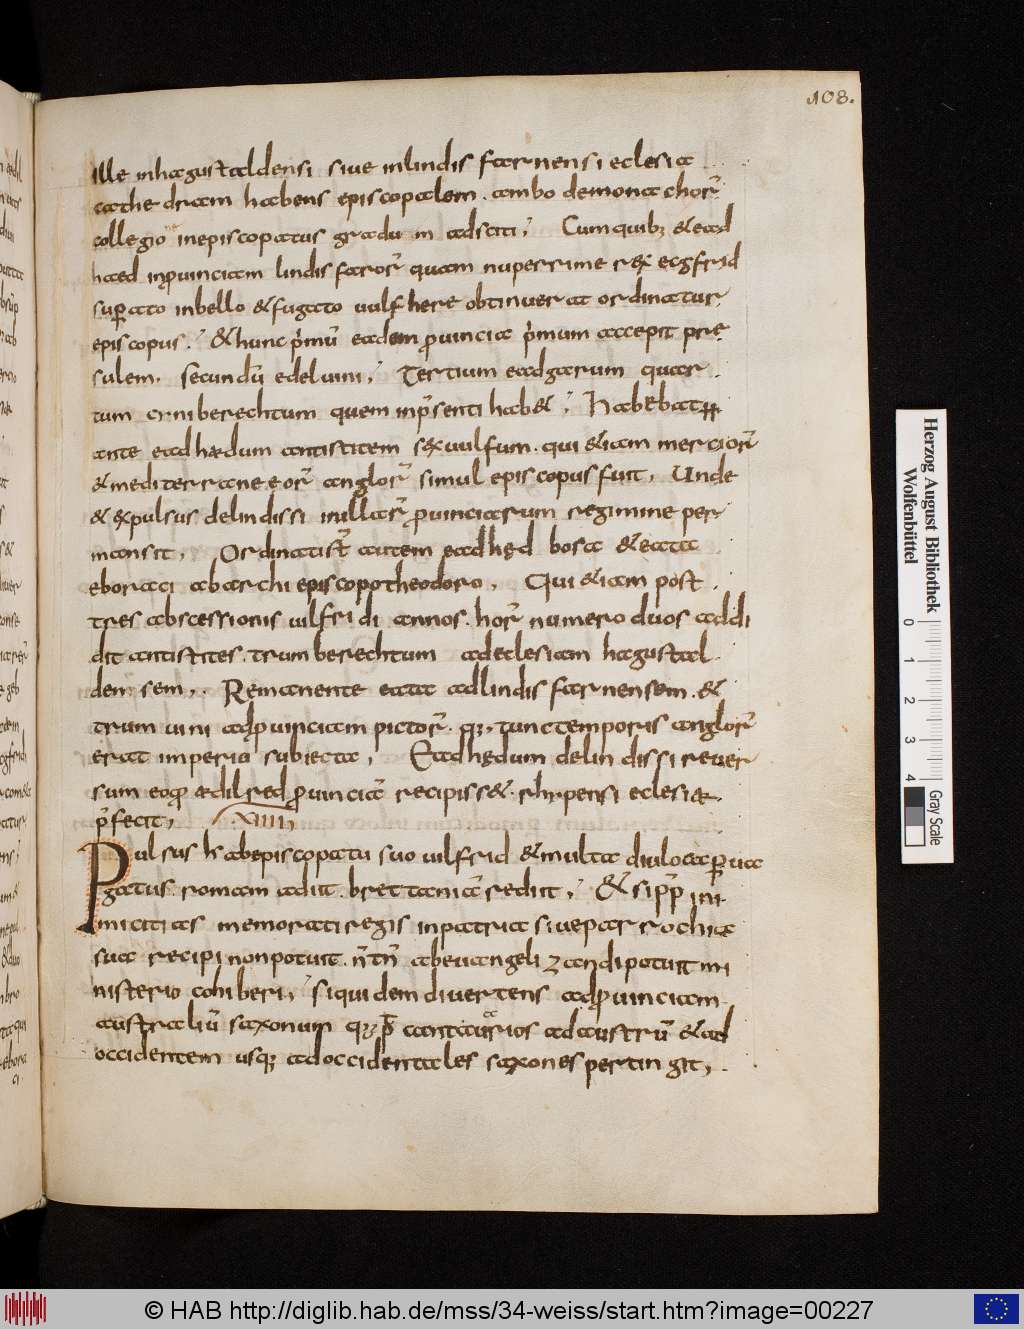 108.
ille inhagustaldensi sive inlindis farnensi eclesia
cathedram habens episcopalem. ambo demonachor̄
collegio inepiscopatus gradum adsciti; Cumquib; & ead
haed inprouinciam lindisfaror̄ quam nuperrime rex ecgfrid
sup̄ato inbello & fugato uulfhere obtinuerat ordinatur
episcopus; & hunc p̄mū eadem prouincia p̄mum accepit pre
sulem. secundū edeluini; Tertium eadgarum quar
tum cyniberechtum quem inp̄senti hab&; Habebat
ante eadhædum antistitem sexuulfum. qui &iam mercior̄
& mediterraneeor̄ anglor̄ simul episcopus fuit, Unde
& expulsus delindissi inillar̄ prouinciarum regimine per
mansit, Ordinatist̄ autem eadhęd bosa & eata
eboraci abarchiepiscopotheodoro, Qui &iam post
tres abscessionis uilfridi annos. hor̄ numero duos addi
dit antistites. trumberechtum adeclesiam hagustal
densem,. Remanente eata adlindisfarnensem. &
trumuini adprouinciam pictor̄. q;, tunctemporis anglor̄
erat imperio subiecta, Eadhędum delindissi reuer
sum eoq̄ ædilred prouinciā recipiss&. rhypensi eclesiæ
p̄fecit, xiiii
Pulsus h abepiscopatu suo uilfrid & multa diulocap̄ua
gatus. romam adiit. brettaniā rediit, & sip̄p̄ ini
micitias memoratiregis inpatria siueparrochia
sua recipi nonpotuit. n̄tn̄ abeuangelizandipotuit mi
nisterio cohiberi, siquidem diuertens adprouinciam
australiū saxonum q;p̄ cantuarios adaustrū & ad
occidentem usq; adoccidentales saxones pertingit,.
Herzog August Bibliothek
Wolfenbüttel
0 1 2 3 4
Gray Scale
© HAB http://diglib.hab.de/mss/34-weiss/start.htm?image=00227